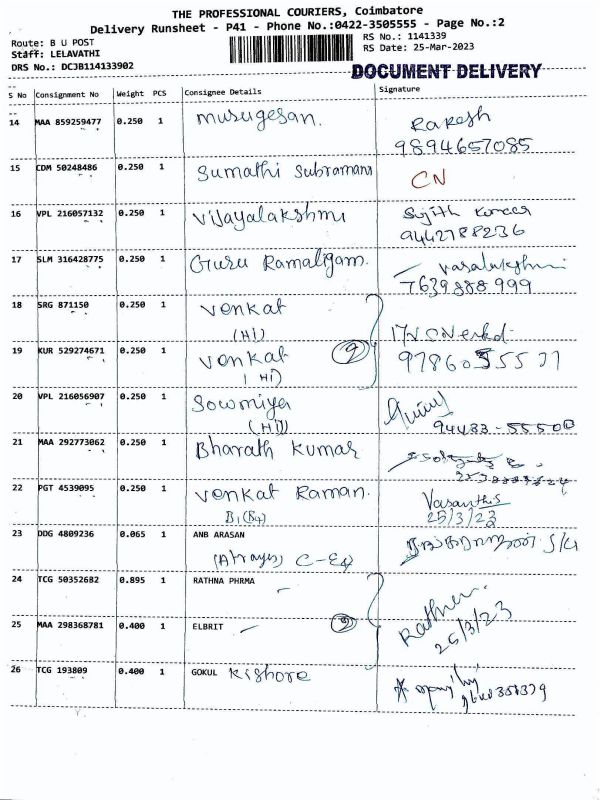 THE PROFESSIONAL COURIERS, Coimbatore
Delivery Runsheet - P41 - Phone No.:0422-3505555 - Page No.:2
Route: B U POST
RS No.: 1141339
Staff: LELAVATHI
RS Date: 25-Mar-2023
DRS No.: DCJB114133902
DOCUMENT DELIVERY
S No Consignment No Weight PCS Consignee Details Signature
14 MAA 859259477 0.250 1 Murugesan. Rakesh
9894657085
15 CDM 50248486 0.250 1 Sumathi Subramani CN
16 VPL 216057132 0.250 1 Vijayalakshmi Sujith Kumar
9442788236
17 SLM 316428775 0.250 1 Guru Ramaligam. Varalakshmi
7639888999
18 SRG 871150 0.250 1 Venkat
(HI)
19 KUR 529274671 0.250 1 Venkat (2)
(HI)
20 VPL 216056907 0.250 1 Sowmiya
94433-55500
21 MAA 292773062 0.250 1 Bharath Kumar
22 PGT 4539095 0.250 1 Venkat Raman. Vasanthi
B1(B4) 25/3/23
23 DDG 4809236 0.065 1 ANB ARASAN
C-E4
24 TCG 50352682 0.895 1 RATHNA PHRMA
25 MAA 298368781 0.400 1 ELBRIT (2) 25/3/23
26 TCG 193809 0.400 1 GOKUL Kishore